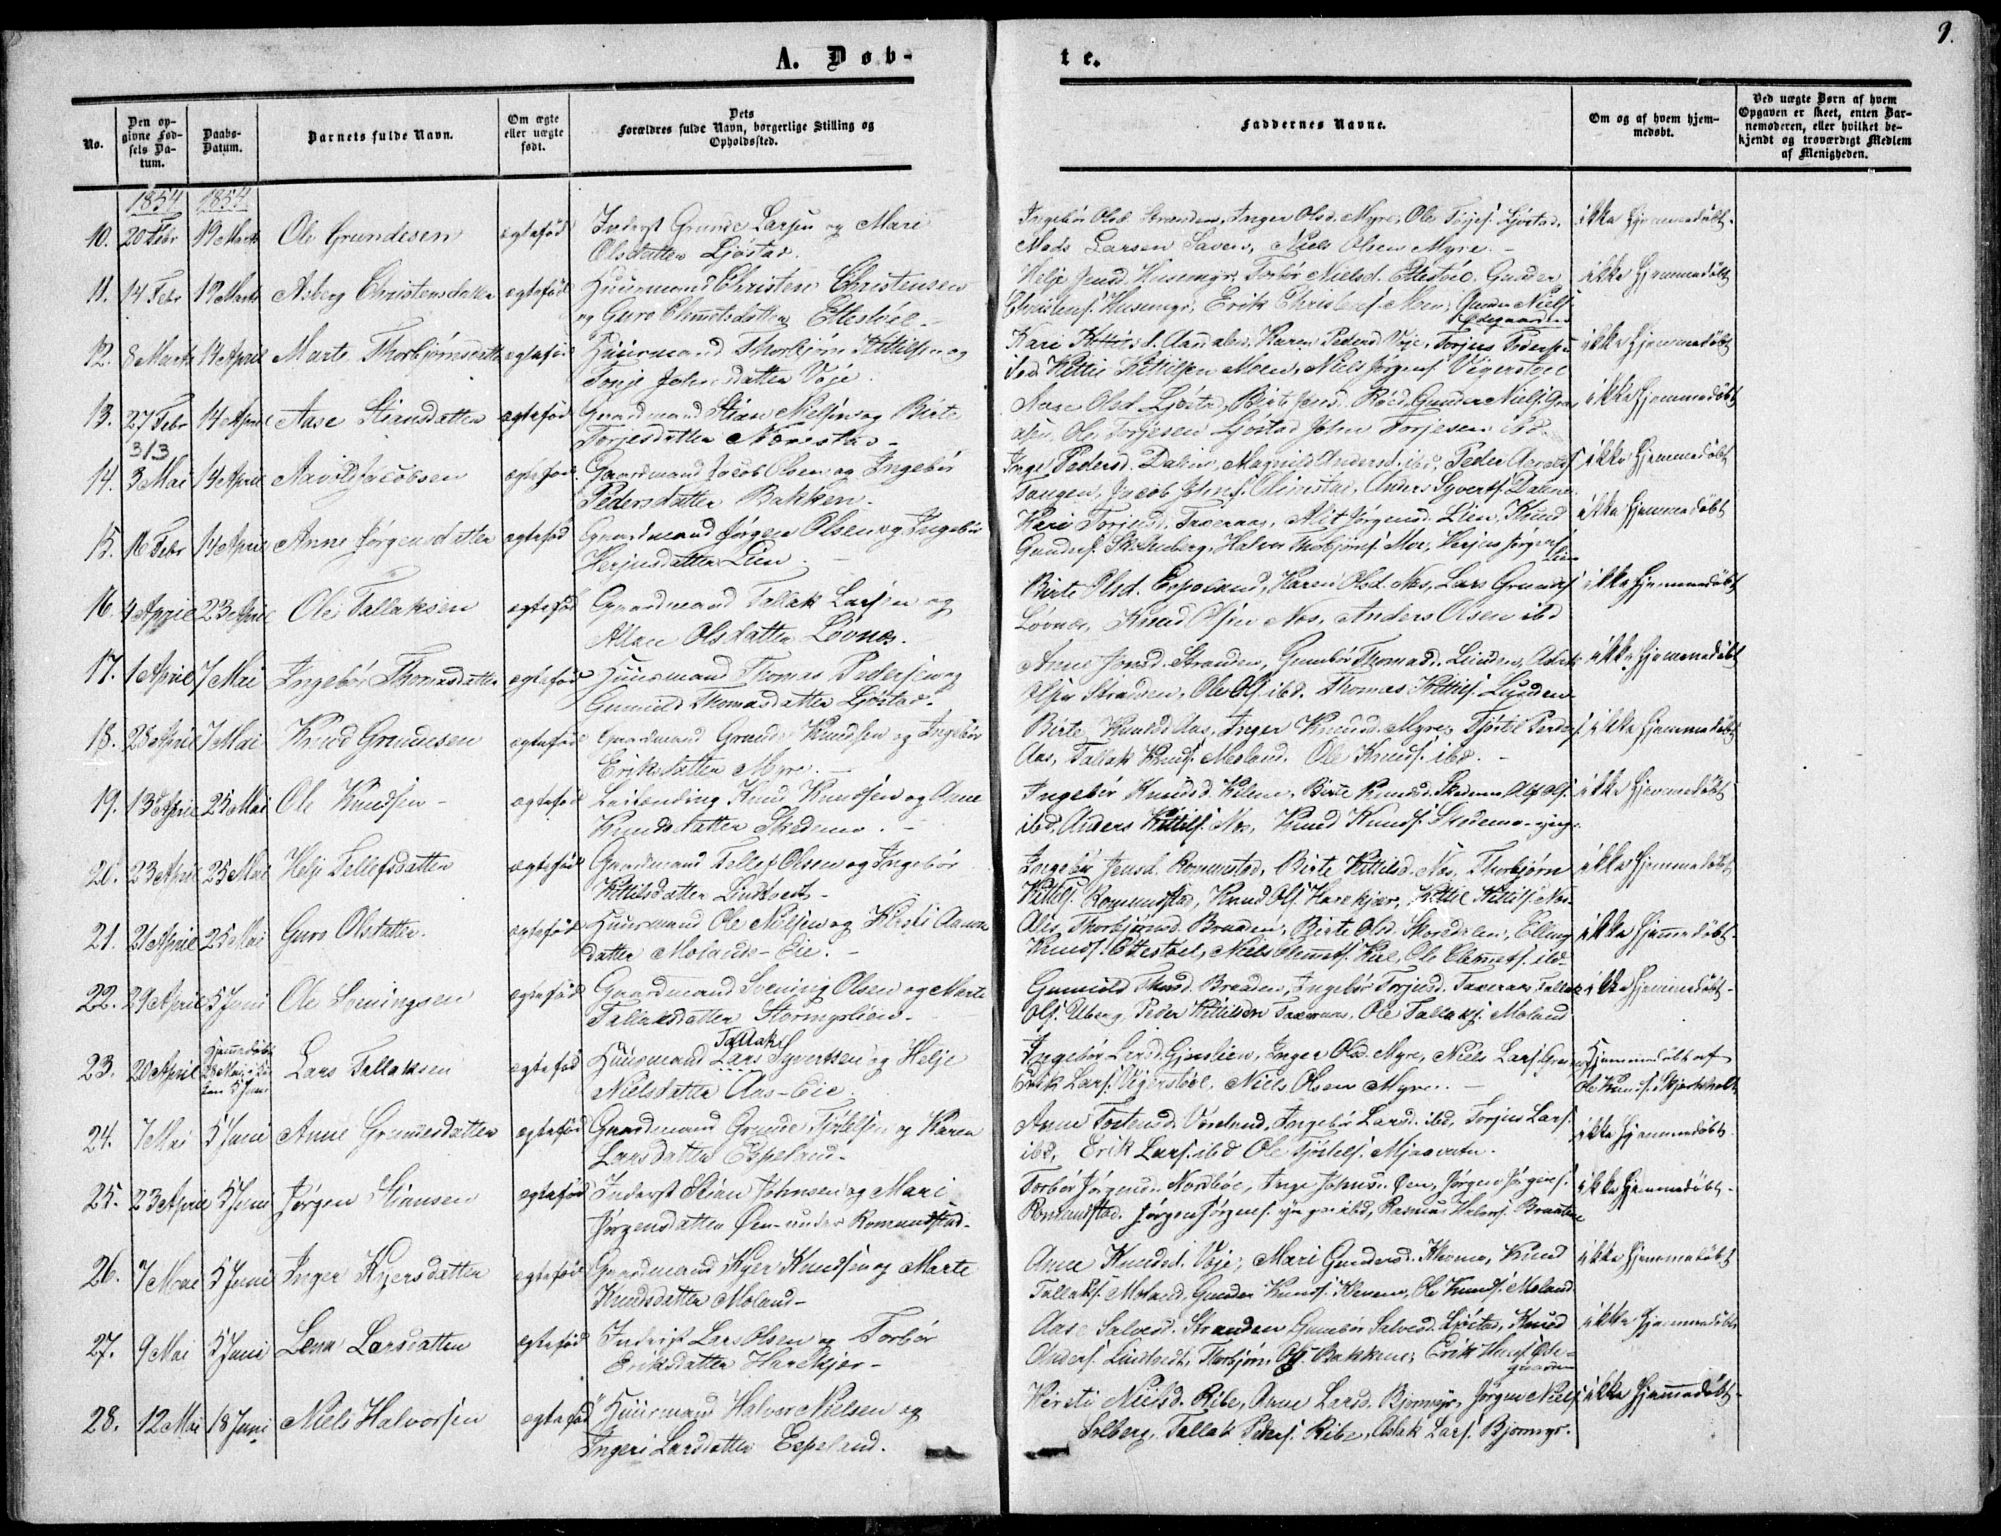 A. Døb-
te.
9.
No.
Den op-
givne Fød-
sels Da-
tum.
Daabs-
Datum.
Barnets fulde Navn.
Om ægte
eller uægte
født.
Dets
Forældres fulde Navn, borgerlige Stilling og
Opholdssted.
Faddernes Navne.
Om og af hvem hjem-
medøbt.
Ved uægte Børn af hvem
Opgaven er skeet, enten Bar-
nemoderen, eller hvilket be-
kjendt og troværdigt Medlem
af Menigheden.
1854 1854
10. 20 Febr 19 Marts Ole Grundesen ægtefød Inderst Grunde Larsen og Mari
Olsdatter Ljøstad.
Ingebør Olsd. Stranden, Inger Olsd. Myre, Ole Torjes. Ljøstad,
Mads Larsen Saven, Niels Olsen Myre.
ikke hjemmedøbt.
11. 14 Febr 19 Marts Asberg Christensdatter ægtefød Huusmand Christen Christensen
og Guro Clemetsdatter Ettestøl.
Helje Jensd. Husemyr. Torbør Nielsd. Ettestøl, Gunder
Christens. Husemyr, Erik Christens. Moen, Gunder Niels.
Ødegaarden
ikke hjemmedøbt
12. 8 Marts 14 April Marte Thorbjørnsdatter ægtefød Huusmand Thorbjørn Kittilsen og
Tonje Johnsdatter Vøje.
Kari Kittilsd. Aasdalen, Karen Pedersd. Vøje, Torjus Pedersen
ibd Kittil Kittilsen Moen, Niels Jørgens. Vegerstøl
ikke hjemmedøbt
13. 27 Febr 14 April Aase Stiansdatter ægtefød Gaardmand Stian Nielsen og Birte
Torjesdatter Nærestad.
Aase Olsd Ljøstad, Birte Jensd. Røed, Gunder Niels.
Ole Torjesen Ljøstad John Torjesen ibd.
ikke hjemmedøbt
3/3
14. 3 Mai 14 April Aavild Jacobsen ægtefød. Gaardmand Jacob Olsen og Ingebør
Pedersdatter Bakken.
Inge Pedersd. Dalen, Magnild Andersd. ibd. Peder
Tangen, Jacob Johns. Olimstad, Anders Syverts. Dalene.
ikke hjemmedøbt
15. 16 Febr 14 April Anne Jørgensdatter ægtefød Gaardmand Jørgen Olsen og Ingebør
Herjusdatter Lien.
Kari Torjusd. Taxeraas, Alet Jørgensd. Lien, Knud
Gunders. Halvor Thorbjørns. Moe, Herjus Jørgens.
Lien
ikke hjemmedøbt
16. 4 April 23 April Ole Tallaksen ægtefød Gaardmand Tallak Larsen og
Olsdatter Løvnes.
Birte Olsd. Espeland, Karen Olsd. Nes, Lars Grundes.
Løvnes, Knud Olsen Nes, Anders Olsen ibd
ikke hjemmedøbt
17. 1 April 7 Mai Ingebør Thomasdatter ægtefød Huusmand Thomas Pedersen og
Gunild Thomasdatter Ljøstad.
Anne Jensd. Stranden, Gunbør Thomasd. Lunden, Aslak
Olsen Stranden, Ole Ols. ibd. Thomas Kittils. Lunden
ikke hjemmedøbt
18. 25 April 7 Mai Knud Grundesen ægtefød Gaardmand Grunde Knudsen og Ingebør
Eriksdatter Myre.
Birte Knudsd Aas, Inger Knudsd. Myre, Tjøstel Peders.
Aas, Tallak Knuds. Moland. Ole Knuds. ibd.
ikke hjemmedøbt
19. 13 April 25 Mai Ole Knudsen ægtefød Leilænding Knud Knudsen og Anne
Knudsdatter Skedemo.
Ingebør Knudsd. Kilene, Birte Knudsd. Skedemo, Ols.
ibd, Anders Kittils. Nes, Knud Knuds. Skedemo yng.
ikke hjemmedøbt
20. 23 April 25 Mai Helje Tellefsdatter ægtefød Gaardmand Tellef Olsen og Ingebør
Kittilsdatter Lindtveit
Ingebør Jensd. Romundstad, Birte Kittilsd. Nes, Thorbjørn
Kittils. Romundstad, Knud Ols. Harekjær, Kittil Kittils. Nes.
ikke hjemmedøbt
21. 21 April 25 Mai Guro Olsdatter. ægtefød Huusmand Ole Nielsen og Kirsti Aanon
datter Molands-Eie.
Alis Thorbjørnsd. Braaden, Birte Olsd. Skoredalen, Elling
Knuds. Ettestøl, Niels Clemets. Kiil, Ole Clemets. ibd.
ikke hjemmedøbt.
22. 29 April 5 Juni Ole Sveningsen ægtefød Gaardmand Svening Olsen og Marte
Tallaksdatter Stormyrlien.
Gunild Braaden, Ingebør Torjusd. Taxeraas, Tallak
Ols. Uberg, Peder Kittilsen Taxeraas, Ole Tallaks. Moland
ikke hjemmedøbt.
23. 20 April Hjemmedøbt
28 Mai, i Kir
ken 5 Juni Lars Tallaksen ægtefød Huusmand Tallak Lars Syvertsen og Helje
Nielsdatter Aas-Eie
Ingebør Larsd Gjerslien, Inger Olsd. Myre, Niels Lars.
Erik Lars. Vegerstøl, Niels Olsen Myre.
Hjemmedøbt af
Ole Knuds. Skjerkholt
24. 7 Mai 5 Juni Anne Grundesdatter ægtefød Gaardmand Grunde Tjøstelsen og Karen
Larsdatter Espeland.
Anne Torbensd. Voreland, Ingebør Larsd. ibd, Torjus Lars.
ibd, Erik Lars. ibd Ole Tjøstels. Mjaavatn.
ikke hjemmedøbt
25. 23 April 5 Juni Jørgen Stiansen ægtefød Inderst Stian Johnsen og Mari
Jørgensdatter Øen under Romundstad.
Torbør Jørgensd. Nordbøe, Inge Johnsd. Øen, Jørgen Jørgens.
Romundstad. Jørgen Jørgens. yngre ibd, Rasmus Halvors. Braatene
ikke hjemmedøbt.
26. 7 Mai 5 Juni Inger Kyersdatter ægtefød Gaardmand Kyer Knudsen og Marte
Knudsdatter Moland
Anne Knudsd. Vøje, Mari Gundersd. Kleven, Knud
Tallaks. Moland, Gunder Knuds. Kleven, Ole Knuds. Moland
ikke hjemmedøbt
27. 9 Mai 5 Juni Lena Larsdatter ægtefød Inderst Lars Olsen og Torbør
Eriksdatter Harekjær
Aase Salvesd. Stranden Gunbør Salvesd. Ljøstad, Knud
Anders. Lindtveit, Thorbjørn Ols. Bakken, Erik Øde-
gaarden
ikke hjemmedøbt
28. 12 Mai 18 Juni Niels Halvorsen ægtefød Huusmand Halvor Nielsen og
Ingeri Larsdatter Espeland.
Kirsti Nielsd. Ribe, Anne Larsd. Bjornmyr, Jørgen Niels.
Solberg, Tallak Peders. Ribe, Aslak Lars. Bjornmyr.
ikke hjemmedøbt.